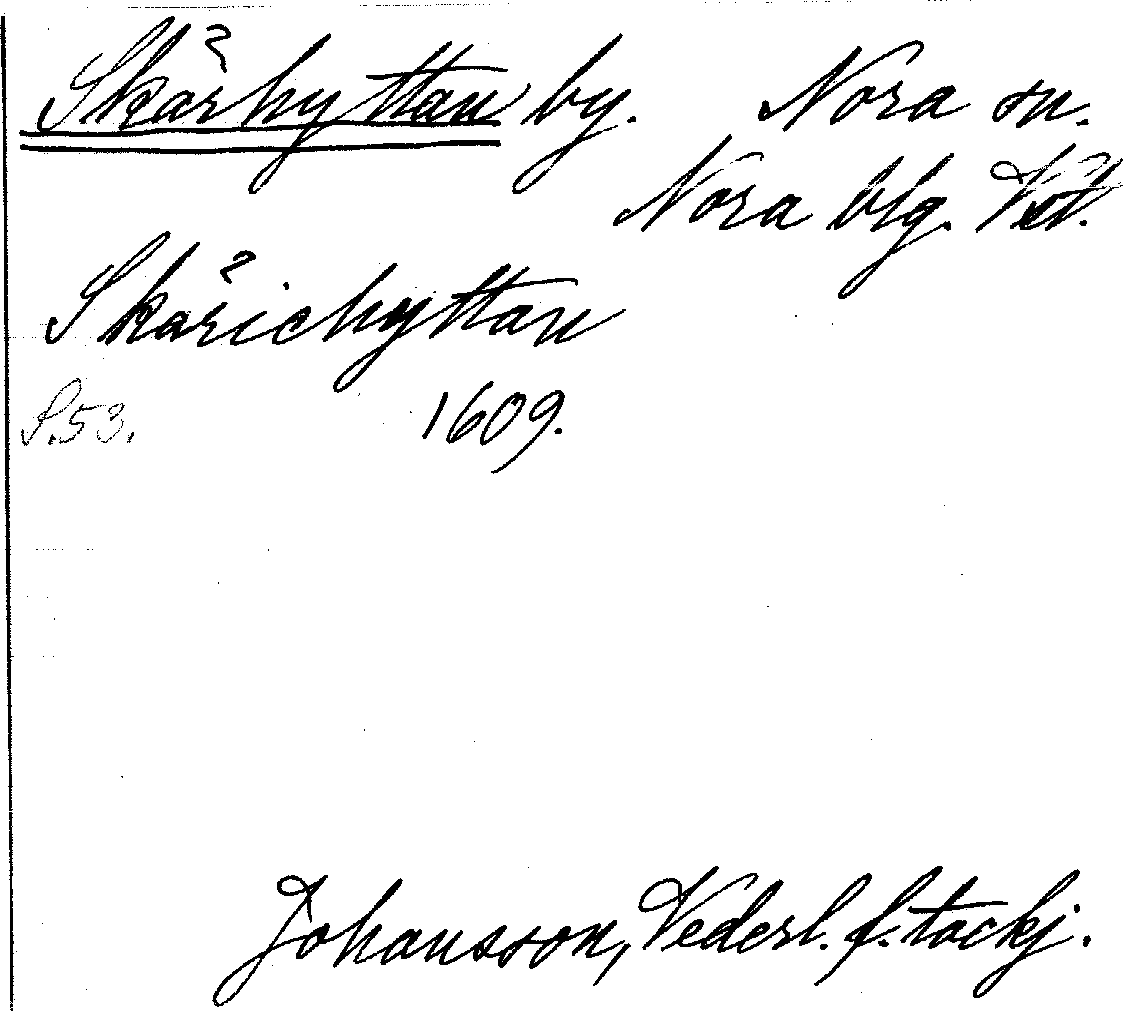 Skårhyttan by. Nora sn.
Nora blg. Vstl.
Skårichyttan
S.53. 1609.
Johansson, Vederl. f. tackj.